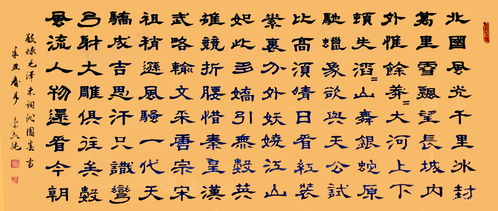 北國風光千里冰封
萬里雪飄望長城內
外惟餘莽=大河上下
頓失滔=山舞銀蛇原
馳蠟象欲與天公試
比高須晴日看紅裝
素裹分外妖嬈江山
如此多嬌引無數英
雄競折腰惜秦皇漢
武略輸文采唐宗宋
祖稍遜風騷一代天
驕成吉思汗只識彎
弓射大雕俱往矣數
風流人物還看今朝
敬錄毛澤東詞沁園春雪